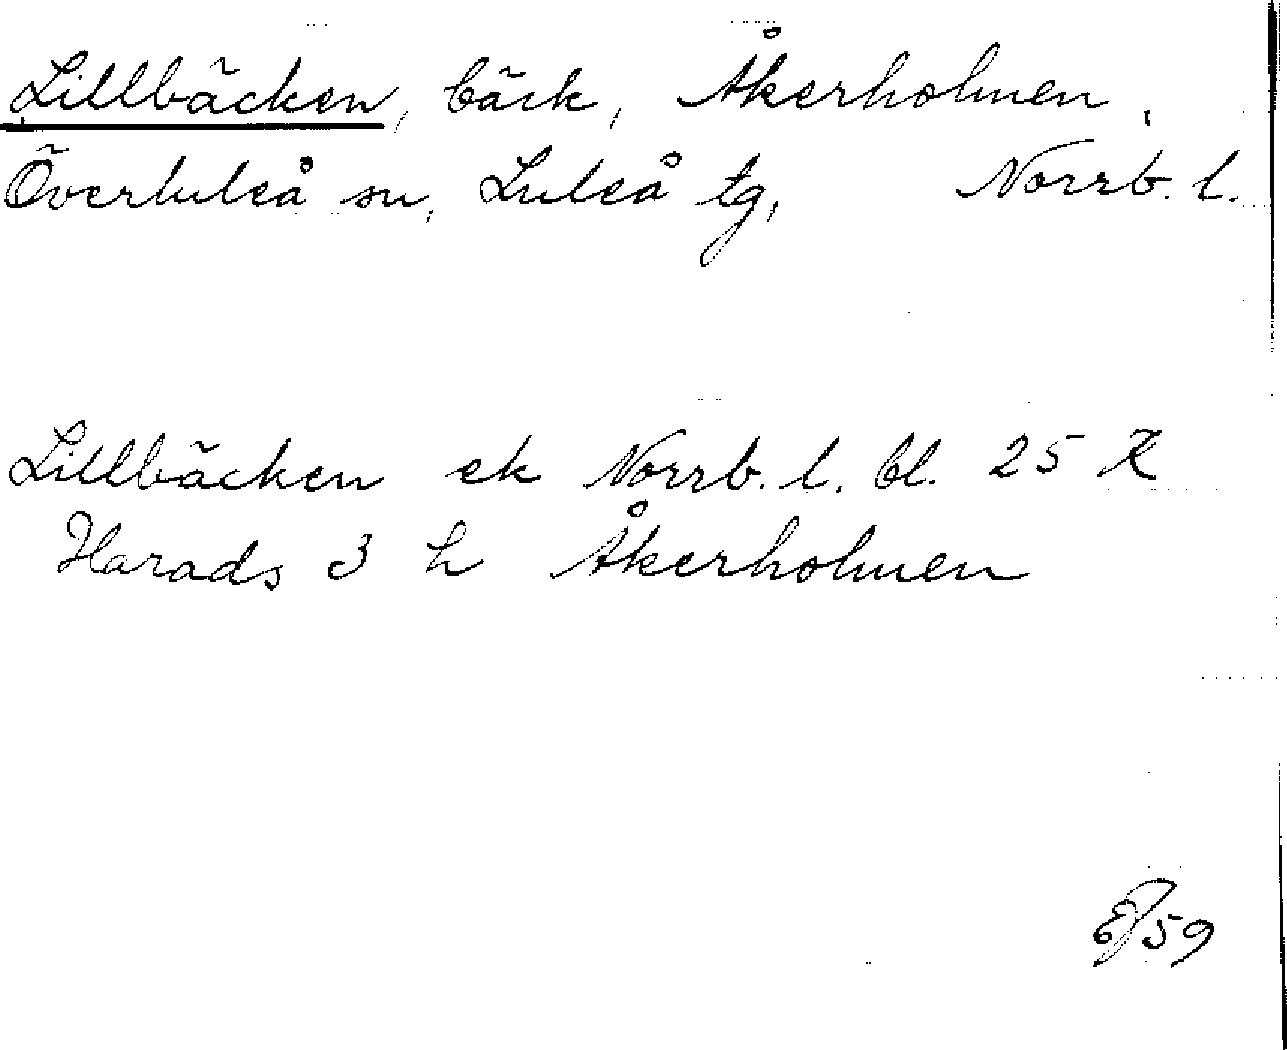 Lillbäcken, bäck, Åkerholmen,
Överluleå sn, Luleå tg, Norrb. l.
Lillbäcken ek Norrb. l. bl. 25 K
Harads 3 h Åkerholmen
59